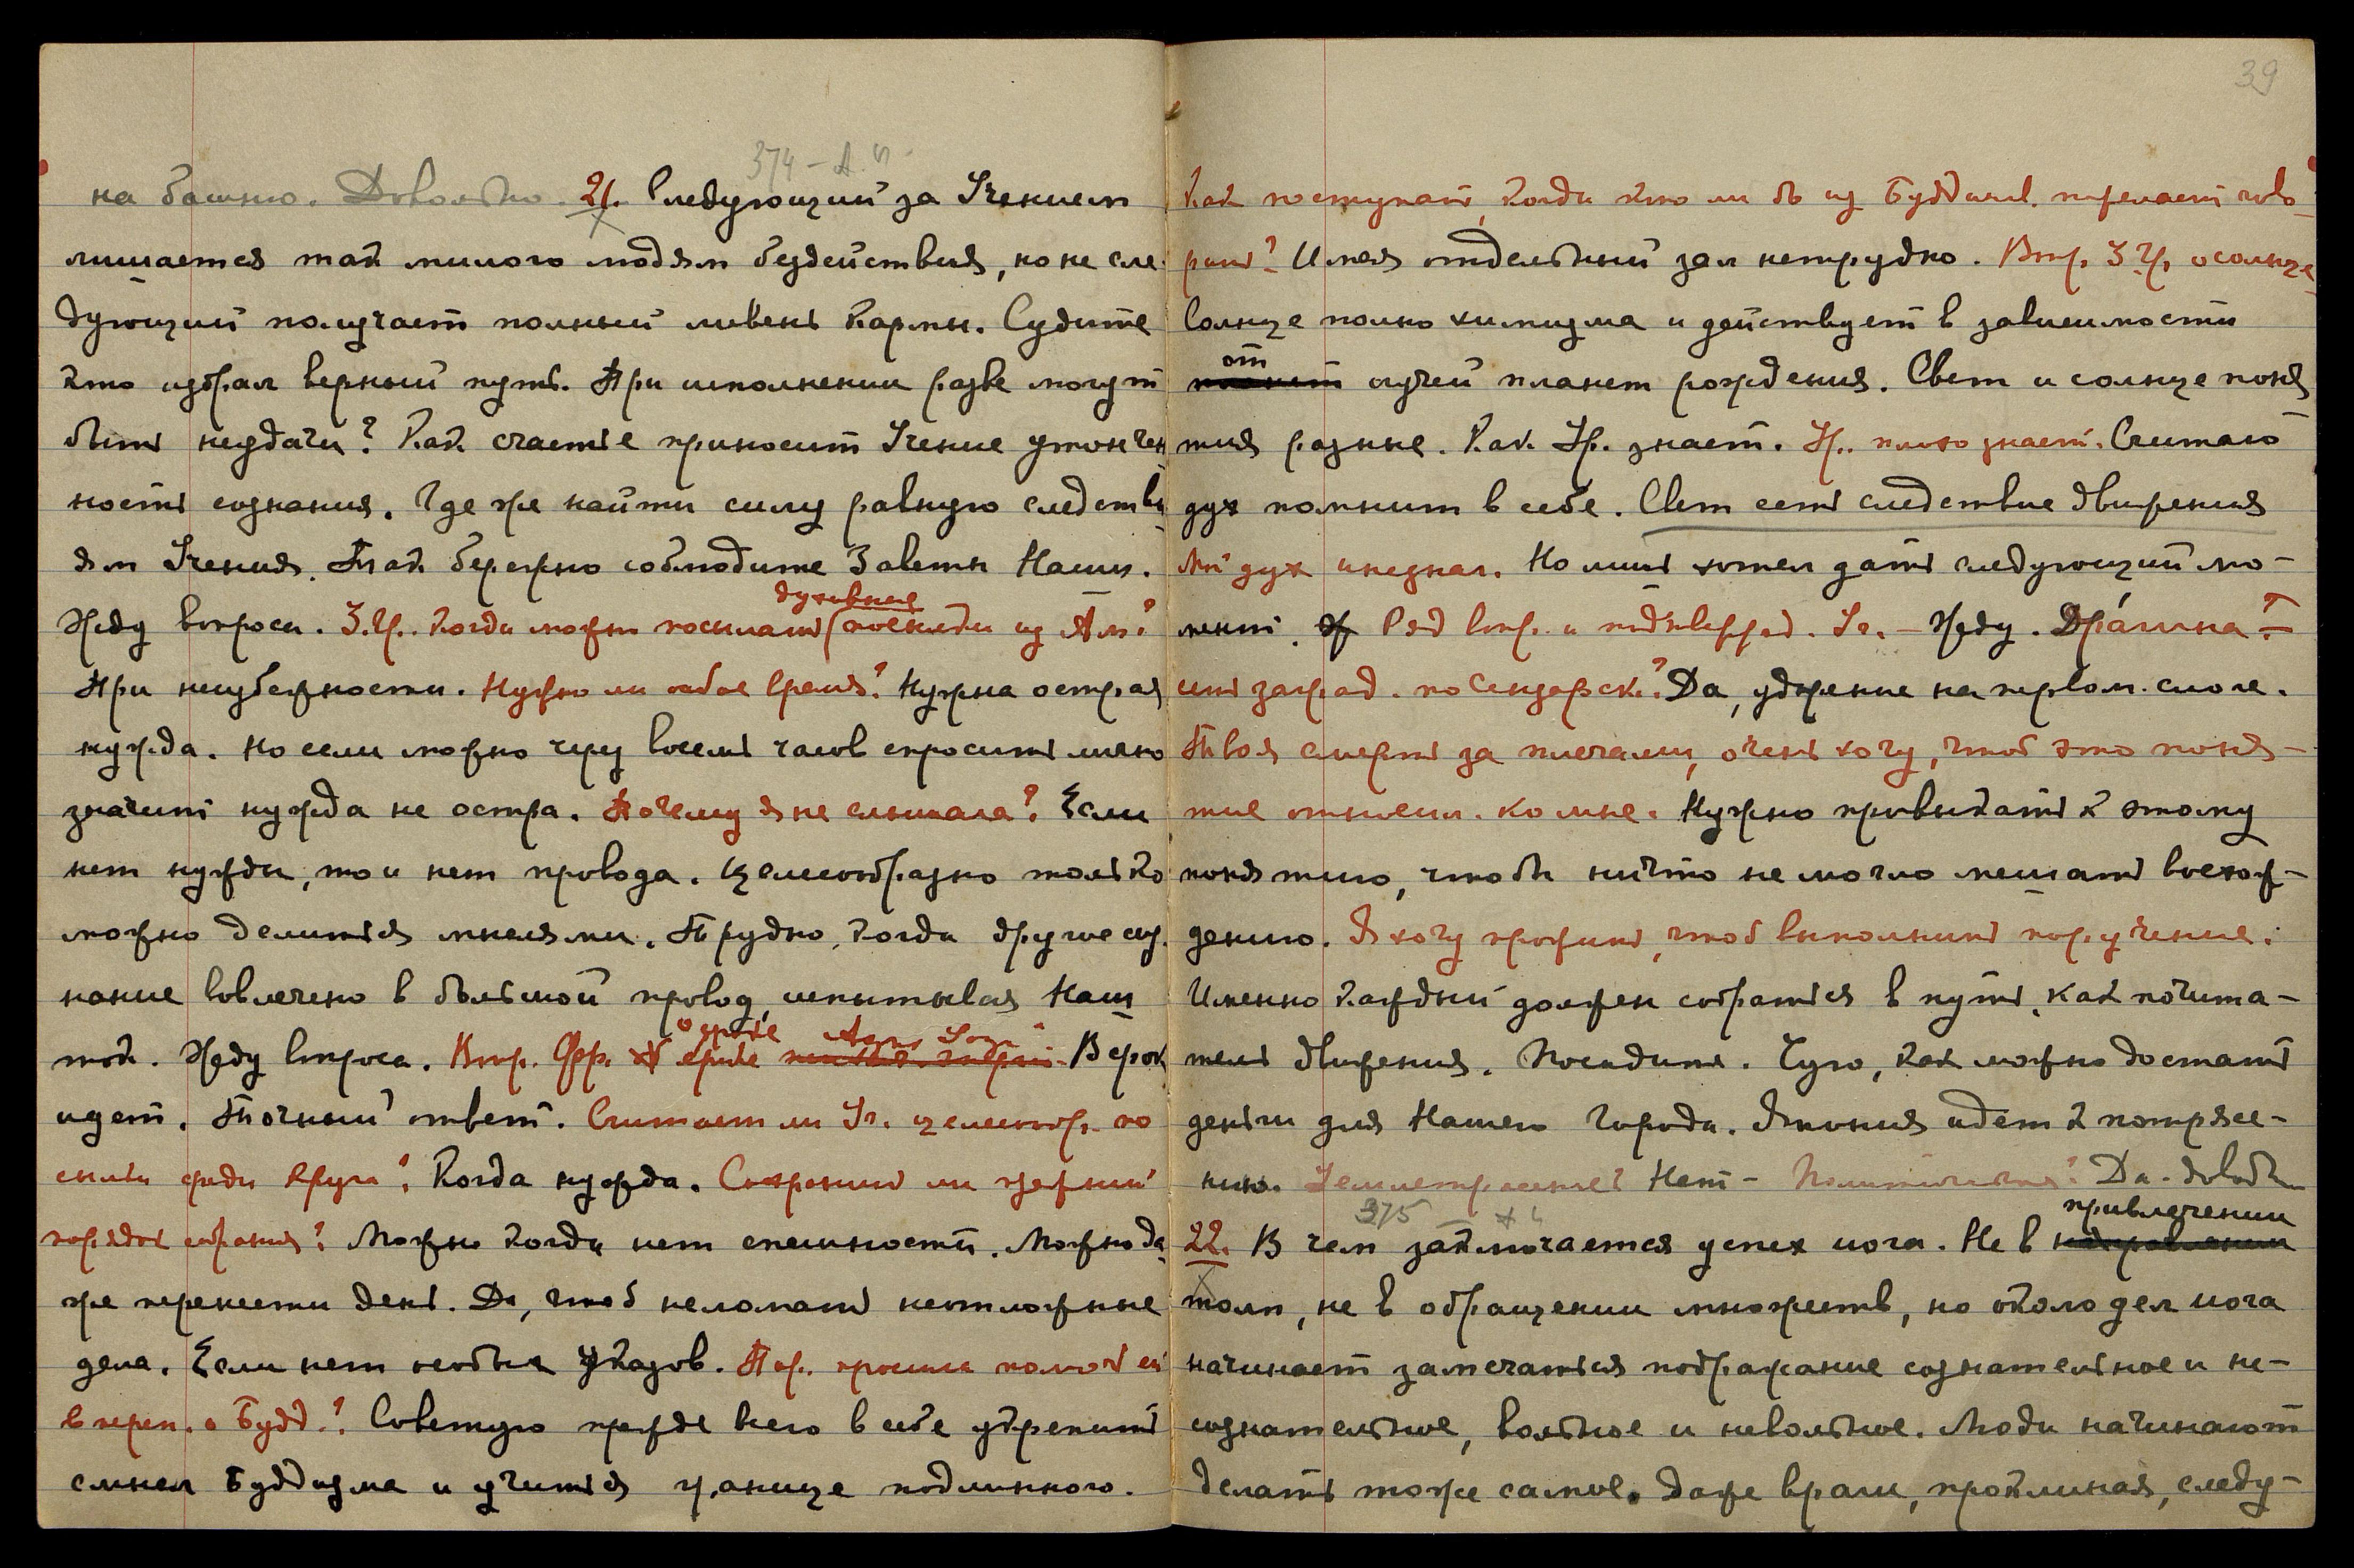 374 - А.Й
на башню. Довольно. 21. Следующий за Учением
лишается так милого людям бездействия, но не сле-
дующий получает полный ливень Кармы. Судите
кто избрал верный путь. При исполнении разве могут
быть неудачи? Как счастье приносит Учение утончен
ность сознания. Где же найти силу равную следстви
ям Учения. Так бережно соблюдите Заветы Наши.
духовные
Жду вопросы. З.Ур. Когда можем посылать посылки из Ам.?
При неизбежности. Нужно ли особое время? Нужна острая
нужда. Но если можно через восемь часов спросить письмо
значит нужда не остра. Почему я не слышала? Если
нет нужды, то и нет провода. Целесообразно только
можно делиться мыслями. Трудно, когда другие соз.
нание вовлечено в большой провод, испытывая Наш
о сроке Агни Йоги
ток. Жду вопроса. Вопр. Фр. о сроке В срок
идет. Точный ответ. Считает ли Уч. целесообр. по
сылы среди круга? Когда нужда. Сохранить ли прежний
порядок собрания? Можно когда нет спешности. Можно да
же перенести день. Да, чтоб не ломать неотложные
дела. Если нет особых Указов. Пор. просила помочь ей
в переп. о Будд.? Советую прежде всего в себе укрепить
смысл Буддизма и учиться границе подлинного.
39
Как поступать, когда кто либо из Буддист. пожелает гово-
рить? Имея отдельный зал нетрудно. Вопр. З.Ур. о солнце
Солнце полно химизма и действует в зависимости
от
планет лучей планет рождения. Свет и солнце поня
тия разные. Как Ур. знает. Ур. плохо знает. Считаю
дух помнит в себе. Свет есть следствие движения
Мой дух и не знал. Но мыш хотел дать следующий мо-
мент. Ряд вопр. и подтвержд. Уч. - Жду. Драгина?
есть заград. по Сензарск.? Да, ударение на первом слоге.
Твоя смерть за плечами, очень хочу, чтоб это поня-
тие относил. ко мне. Нужно привыкать к этому
понятию, чтобы ничто не могло мешать восхож-
дению. Я хочу прожить, чтоб выполнить поручение.
Именно каждый должен собраться в путь, как почита-
тель движения. Посидите. Чую, как можно достать
деньги для Нашего Города. Япония идет к потрясе-
нию. Землетрясение? Нет - Политическое? Да. Довольно
375 А Й
привлечении
22. В чем заключается успех йога. Не в направлении
толп, не в обращении множеств, но около дел йога
начинает замечаться подражание сознательное и не-
сознательное, вольное и невольное. Люди начинают
делать то же самое. Даже враги, проклиная, следу-